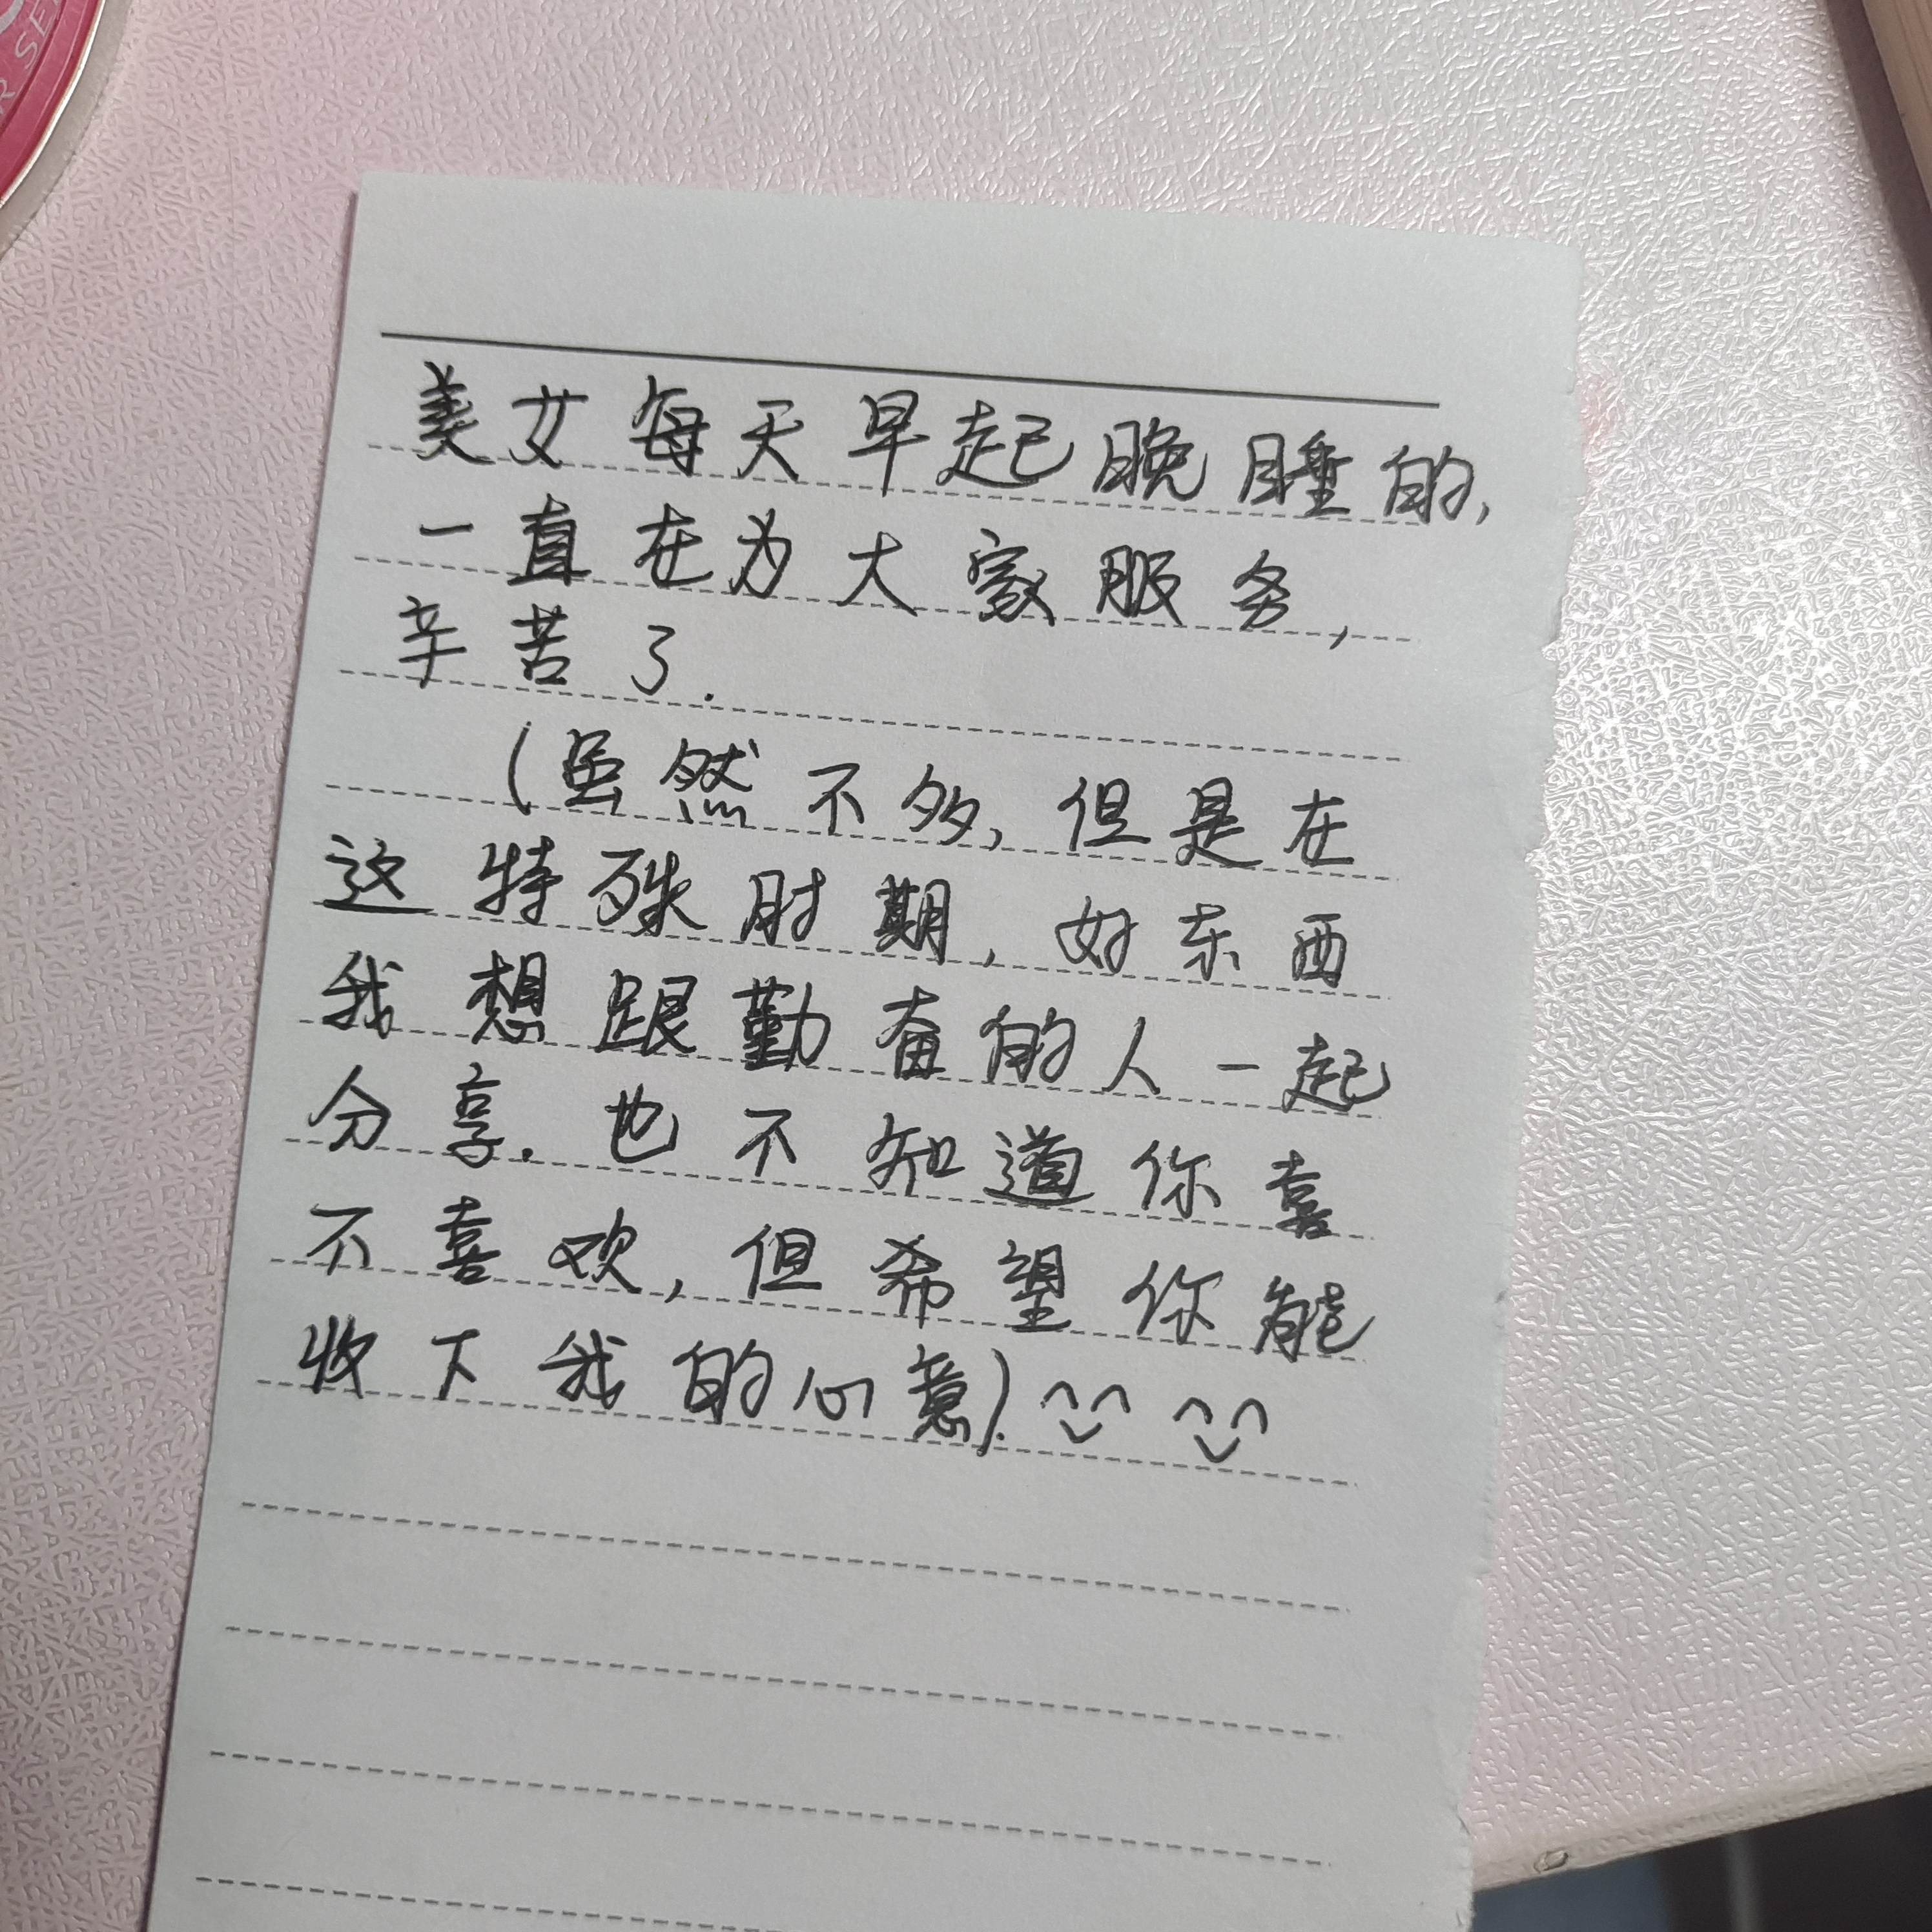 R SE
美女每天早起晚睡的,
一直在为大家服务,
辛苦了.
(虽然不多,但是在
这特殊时期,好东西
我想跟勤奋的人一起
分享.也不知道你喜
不喜欢,但希望你能
收下我的心意).